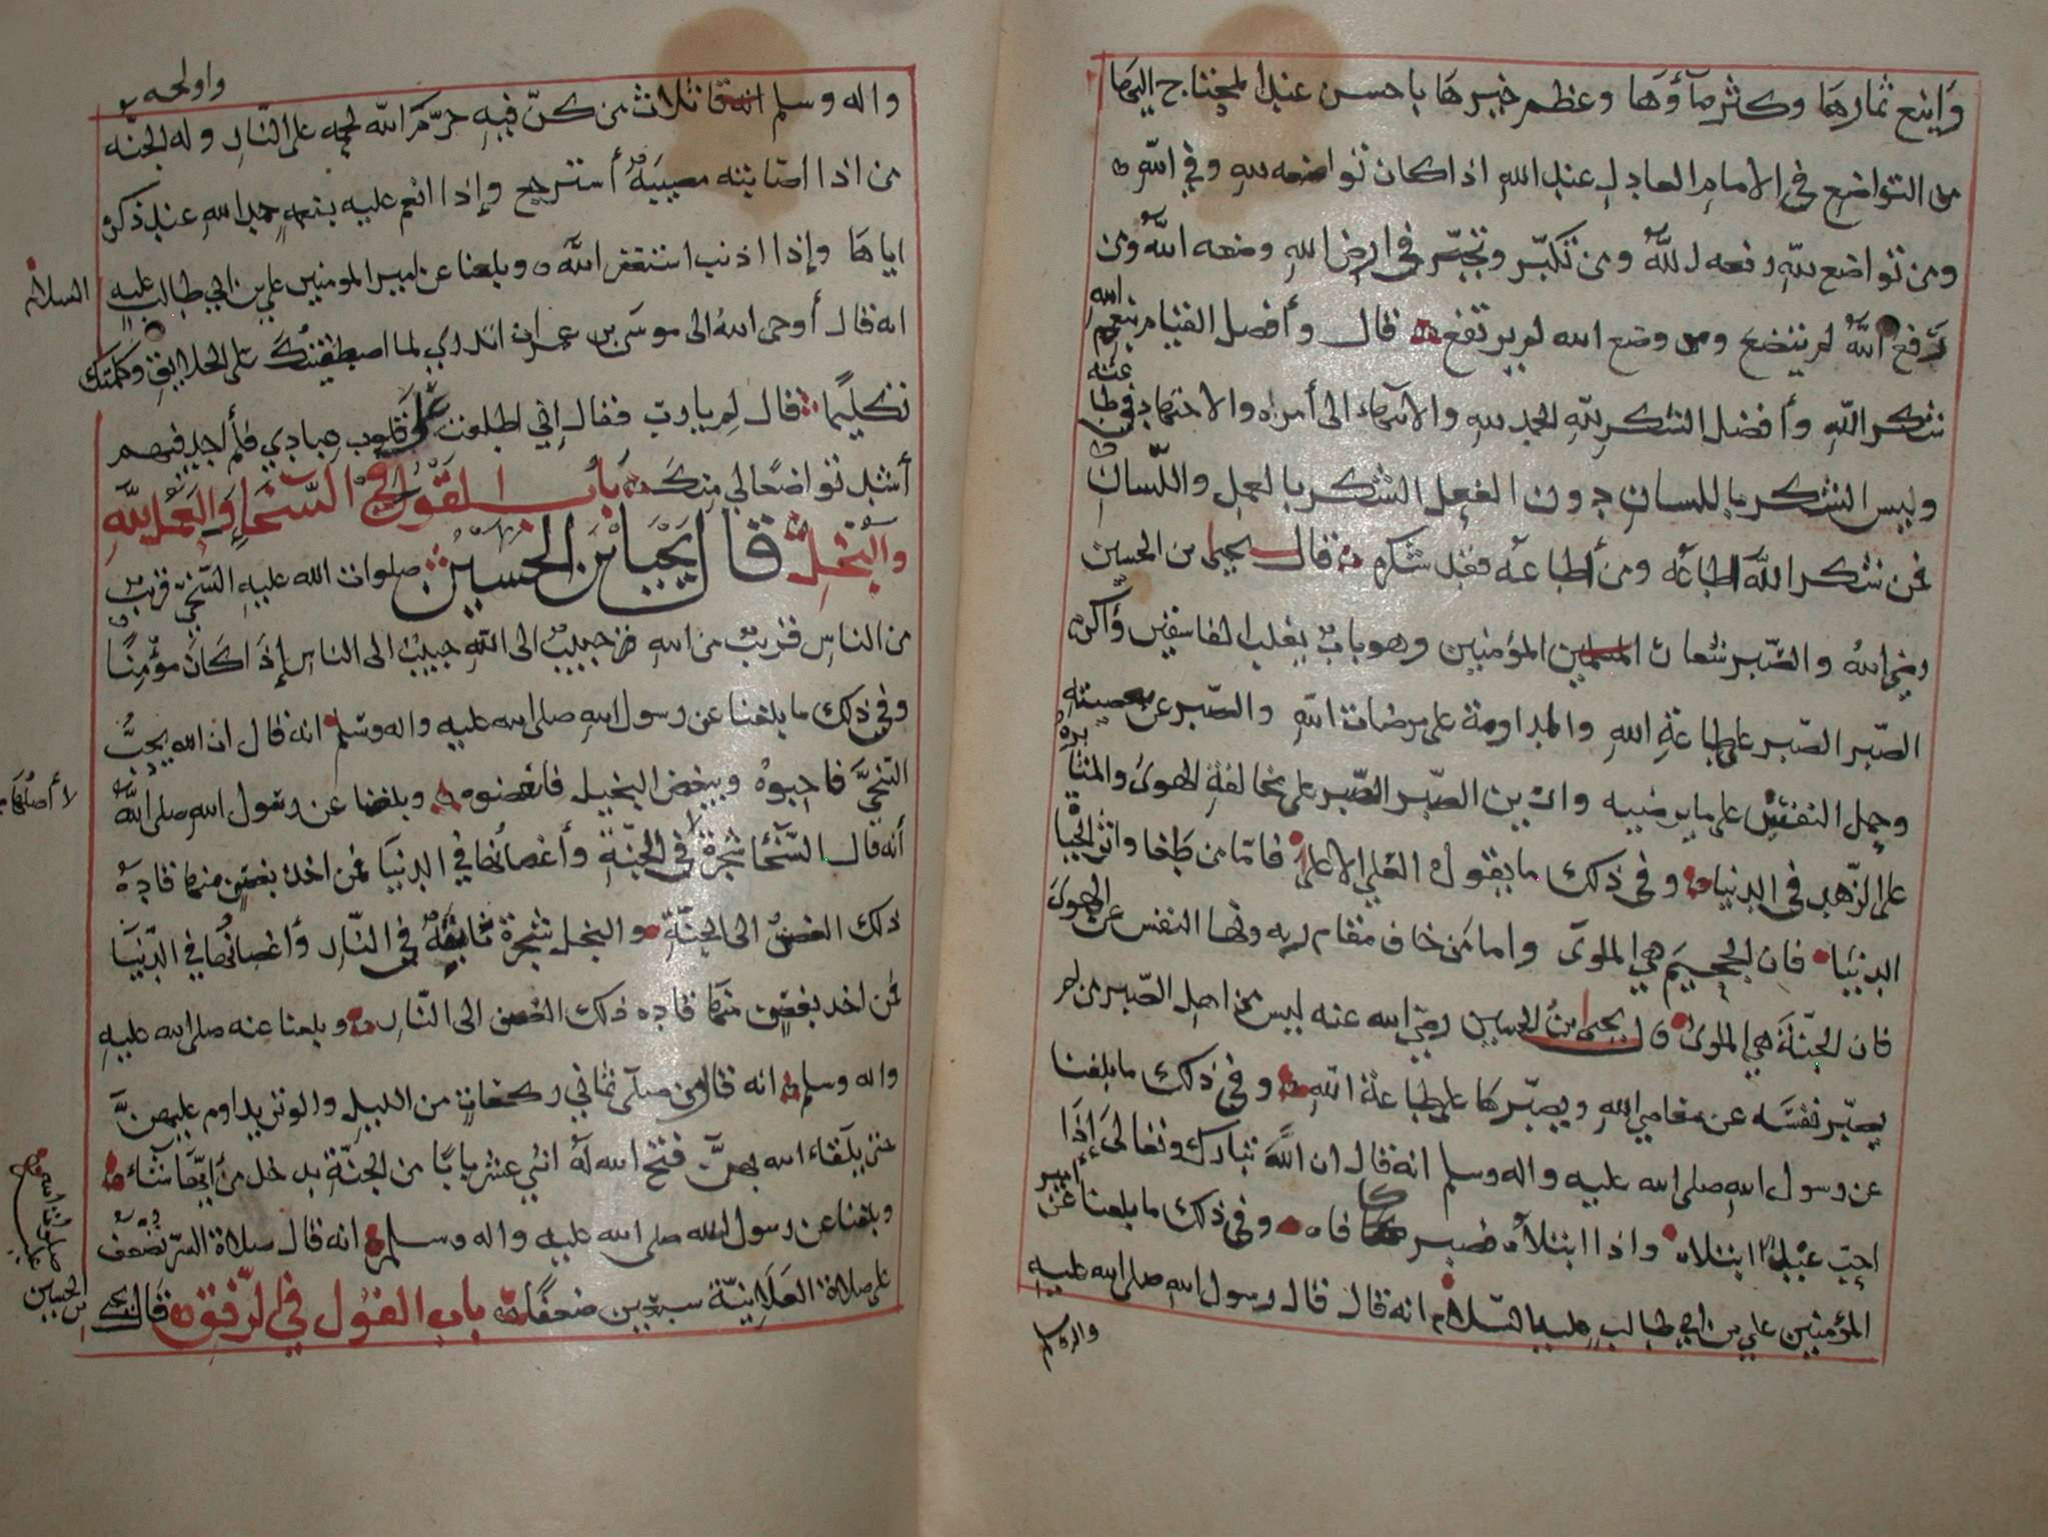 وَاينع ثمارها وكثر مآؤها وعظم خيرها باحسن عند المحتاج اليها
من التواضع في الامام العادل عند الله اذا كان تواضعه لله وفي الله
ومن تواضع لله رفعه الله ومن تكبّر وتجبّر في ارض الله وضعه الله ومن
رفع الله لم يتضع ومن وضع الله لم يرتفع قال وأفضل القيام بنعم الله
شكر الله وأفضل الشكر لله الحمد لله والانتهاء الى أمره والاجتهاد في طاعته
وليس الشكر باللسان دون الفعل الشكر بالعمل واللّسان
فمن شكر الله اطاعه ومن أطاعه فقد شكره قال يحيى بن الحسين
رضي الله والصّبر شعار المؤمنين وهو باب يغلب الفاسقين وأكبر
الصّبر الصّبر على طاعة الله والمداومة على مرضات الله والصّبر عن معصيته
وحمل النفس على ما يرضيه وان بين الصّبر الصّبر على مخالفة الهوى والمثابرة
على الزّهد في الدنيا وفي ذلك ما يقول العلي الاعلى فاما من طغا واثر الحياة
الدنيا فان الجحيم هي الماوى واما من خاف مقام ربه ونها النفس عن الهوى
فان الجنّة هي الماوى قال يحيى ابن الحسين رضي الله عنه ليس من اهل الصّبر من لم
يصبّر نفسَه عن معاصي الله ويصبّرها على طاعة الله وفي ذلك ما بلغنا
عن رسول الله صلى الله عليه واله وسلم انه قال ان الله تبارك وتعالى إذا
احبّ عبدًا ابتلاه واذا ابتلاه فصبر كافاه وفي ذلك ما بلغنا عن أمير
المؤمنين علي بن ابي طالب عليه السّلام انه قال قال رسول الله صلى الله عليه
واله وسلم
واله وسلم انه قا ثلاث من كنّ فيهِ حرّمَ الله لحمه على النّار وله الجنّه
من اذا اصابته مصيبةٌ أسترجع وإذا انعم عليه بنعمةٍ حمد الله عند ذكره
اياها وإذا اذنب استغفر الله وبلغنا عن امير المومنين علي بن ابي طالب عليه السلام
انه قال أوحى الله الى موسى بن عمران اتدري لما اصطفيتك على الخلايق وكلمتك
تكليمًا قال لم يا رب فقال اني اطلعت على قلوب عبادي فلم أجد فيهم
أشد تواضعًا لي منك باب القول في السّخاء والعمل لله
والبخل قال يحيا بن الحسين صلوات الله عليه السّخيّ قريب
من الناس قريبٌ من الله حبيبٌ الى اللهِ حبيبٌ الى الناس إذا كان مؤمنًا
وفي ذلك ما بلغنا عن رسول الله صلى الله عليه واله وسلم انه قال ان الله يحبُّ
السّخيَّ فاحبوهُ ويبغض البخيل فابغضوه وبلغنا عن رسول الله صلى الله
أنه قال السّخا شجرة في الجنّة وأغصانها في الدنيا فمن اخذ بغصن منها قاده
ذلك الغصنُ الى الجنّة والبخل شجرة ثابتةٌ في النّار وأغصانها في الدّنيا
فمن اخذ بغصن منها قاده ذلك الغصن الى النّار وبلغنا عنه صلى الله عليه
واله وسلم انه قال من صلّى ثماني ركعات من الليل والوتر يداوم عليهنّ
حتى يلقاء الله بهنّ فتح الله له اثني عشر بابًا من الجنّة يدخل من أيّها شاء
وبلغنا عن رسول الله صلى الله عليه واله وسلم انه قال صلاة السّر تضعّف
على صلاة العلانيّة سبعين ضعفًا باب القول في الرّفق قال يحي
بن الحسين
صلوات الله عليه
لا أصلها